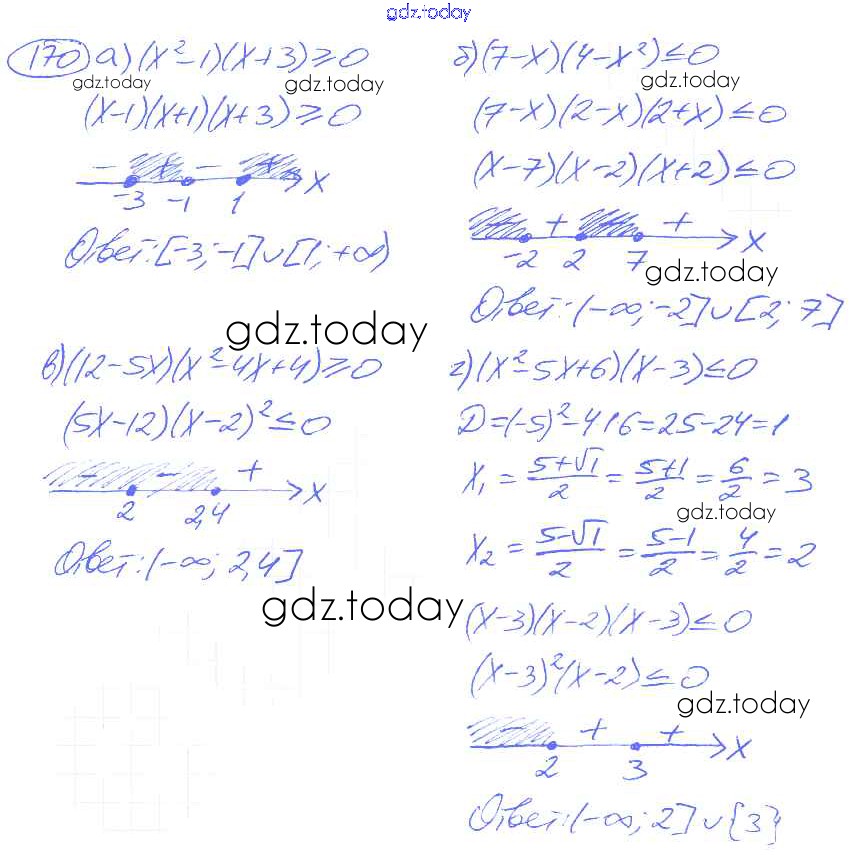 gdz.today
170 а) (x² - 1)(x + 3) ≥ 0
gdz.today
gdz.today
(x-1)(x+1)(x+3) ≥ 0
- + - + x
-3 -1 1
Ответ: [-3; -1] ∪ [1; +∞)
б) (7-x)(4-x²) ≤ 0
gdz.today
(7-x)(2-x)(2+x) ≤ 0
(x-7)(x-2)(x+2) ≤ 0
- + - + x
-2 2 7
gdz.today
Ответ: (-∞; -2] ∪ [2; 7]
gdz.today
в) (12-5x)(x²-4x+4) ≥ 0
(5x-12)(x-2)² ≤ 0
- - + x
2 2,4
Ответ: (-∞; 2,4]
gdz.today
г) (x²-5x+6)(x-3) ≤ 0
D = (-5)² - 4·1·6 = 25-24 = 1
x₁ = (5+√1)/2 = (5+1)/2 = 6/2 = 3
gdz.today
x₂ = (5-√1)/2 = (5-1)/2 = 4/2 = 2
(x-3)(x-2)(x-3) ≤ 0
(x-3)²(x-2) ≤ 0
gdz.today
- + + x
2 3
Ответ: (-∞; 2] ∪ {3}